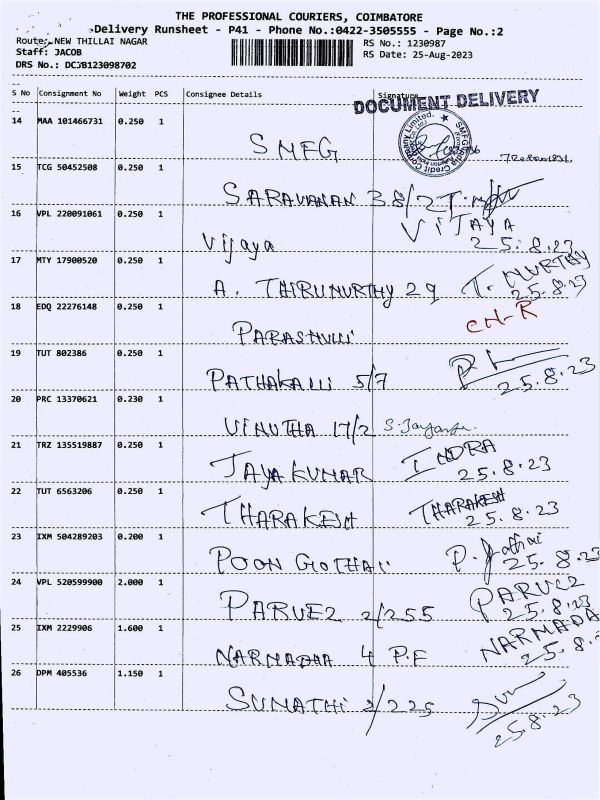 THE PROFESSIONAL COURIERS, COIMBATORE
Delivery Runsheet - P41 - Phone No.:0422-3505555 - Page No.:2
Route: NEW THILLAI NAGAR
RS No.: 1230987
Staff: JACOB
RS Date: 25-Aug-2023
DRS No.: DCJB123098702
S No Consignment No Weight PCS Consignee Details Signature
DOCUMENT DELIVERY
14 MAA 101466731 0.250 1
SMFG
15 TCG 50452508 0.250 1
SARAVANAN 38/2
16 VPL 220091061 0.250 1
Vijaya VIJAYA
25.8.23
17 MTY 17900520 0.250 1
A. THIRUMURTHY 29 T. MURTHY
25.8.23
18 EDQ 22276148 0.250 1
CN-R
19 TUT 802386 0.250 1
5/7
25.8.23
20 PRC 13370621 0.230 1
VINUTHA 17/2
21 TRZ 135519887 0.250 1
JAYAKUMAR INDRA
25.8.23
22 TUT 6563206 0.250 1
THARAKESH THARAKESH
25.8.23
23 IXM 504289203 0.200 1
POONGOTHAI
25.8.23
24 VPL 520599900 2.000 1
PARVEZ 2/255 PARVEZ
25.8.23
25 IXM 2229906 1.600 1
NARMADHA 4 P.F NARMADA
25.8.
26 DPM 405536 1.150 1
SUMATHI 2/225
25.8.23